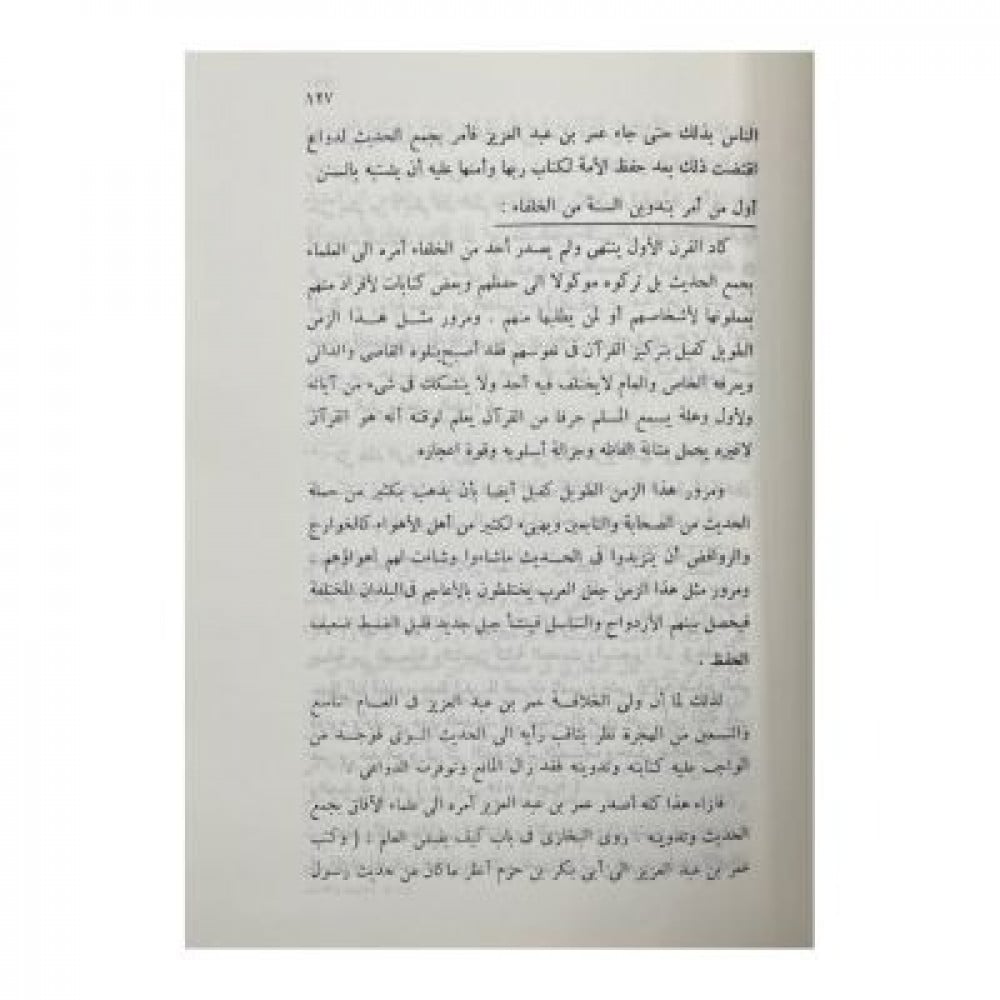 ١٢٧
الناس بذلك حتى جاء عمر بن عبد العزيز فأمر بجمع الحديث لدواع
اقتضت ذلك بعد حفظ الأمة لكتاب ربها وأمنها عليه أن يشتبه بالسنن
أول من أمر بتدوين السنة من الخلفاء :
كاد القرن الأول ينتهى ولم يصدر أحد من الخلفاء أمره الى العلماء
بجمع الحديث بل تركوه موكولا الى حفظهم وبعض كتابات لأفراد منهم
يعملونها لأشخاصهم أو لمن يطلبها منهم . ومرور مثل هذا الزمن
الطويل كفيل بتركيز القرآن فى نفوسهم فقد أصبح يتلوه القاصى والدانى
ويعرفه الخاص والعام لايختلف فيه أحد ولا يتشكك فى شىء من آياته
ولأول وهلة يسمع المسلم حرفا من القرآن يعلم لوقته أنه هو القرآن
لاغيره بجمل متانة الفاظه وجزالة أسلوبه وقوة اعجازه
ومرور هذا الزمن الطويل كفيل أيضا بأن يذهب بكثير من حملة
الحديث من الصحابة والتابعين ويهيىء لكثير من أهل الأهواء كالخوارج
والروافض أن يتزيدوا فى الحديث ماشاءوا وشاءت لهم أهواؤهم .
ومرور مثل هذا الزمن جعل العرب يختلطون بالأعاجم فى البلدان المختلفة
فيحصل منهم الأزدواج والتناسل فينشأ جيل جديد قليل الضبط ضعيف
الحفظ .
لذلك لما أن ولى الخلافة عمر بن عبد العزيز فى العام التاسع
والتسعين من الهجرة نظر بثاقب رأيه الى الحديث النبوى فوجد من
الواجب عليه كتابته وتدوينه فقد زال المانع وتوفرت الدواعى
فازاء هذا كله أصدر عمر بن عبد العزيز أمره الى علماء الآفاق بجمع
الحديث وتدوينه . روى البخارى فى باب كيف يقبض العلم : ( وكتب
عمر بن عبد العزيز الى أبى بكر بن حزم أنظر ما كان من حديث رسول